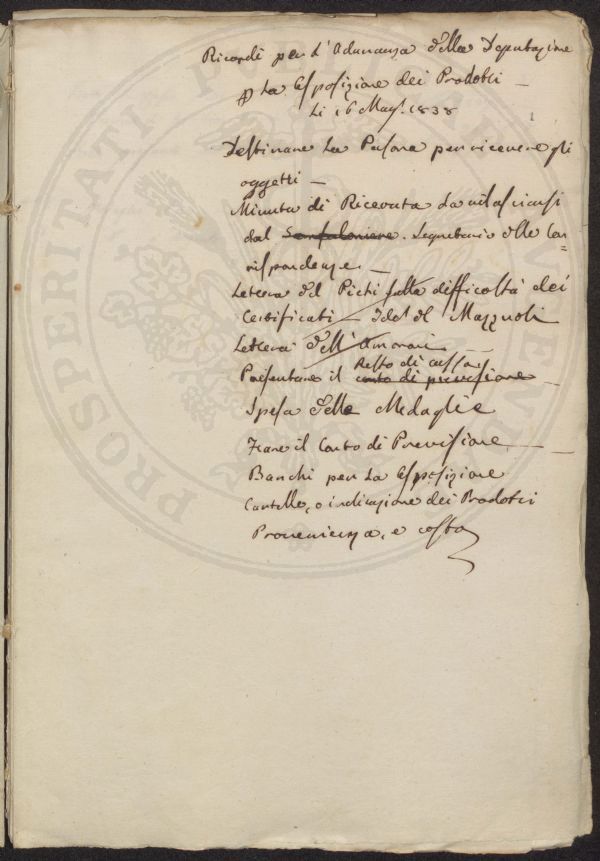 Ricordi per l'Adunanza della Deputazione
p la Esposizione dei Prodotti
Li 16 Mag. 1838
Destinare la Persona per ricevere gli
oggetti
Minuta di Ricevuta da rilasciarsi
dal Gonfaloniere. Segretario delle Cor=
rispondenze
Lettera del Pichi sulla difficoltà dei
Certificati del Mazzuoli
Lettera dell'Amorari
Resto di cassa
Presentare il conto di previsione
Spesa delle Medaglie
Fare il Conto di Previsione
Banchi per la Esposizione
Cartelle, o indicazione dei Prodotti
Provenienza, e costo
PROSPERITATI PUBLICAE AUGENDAE